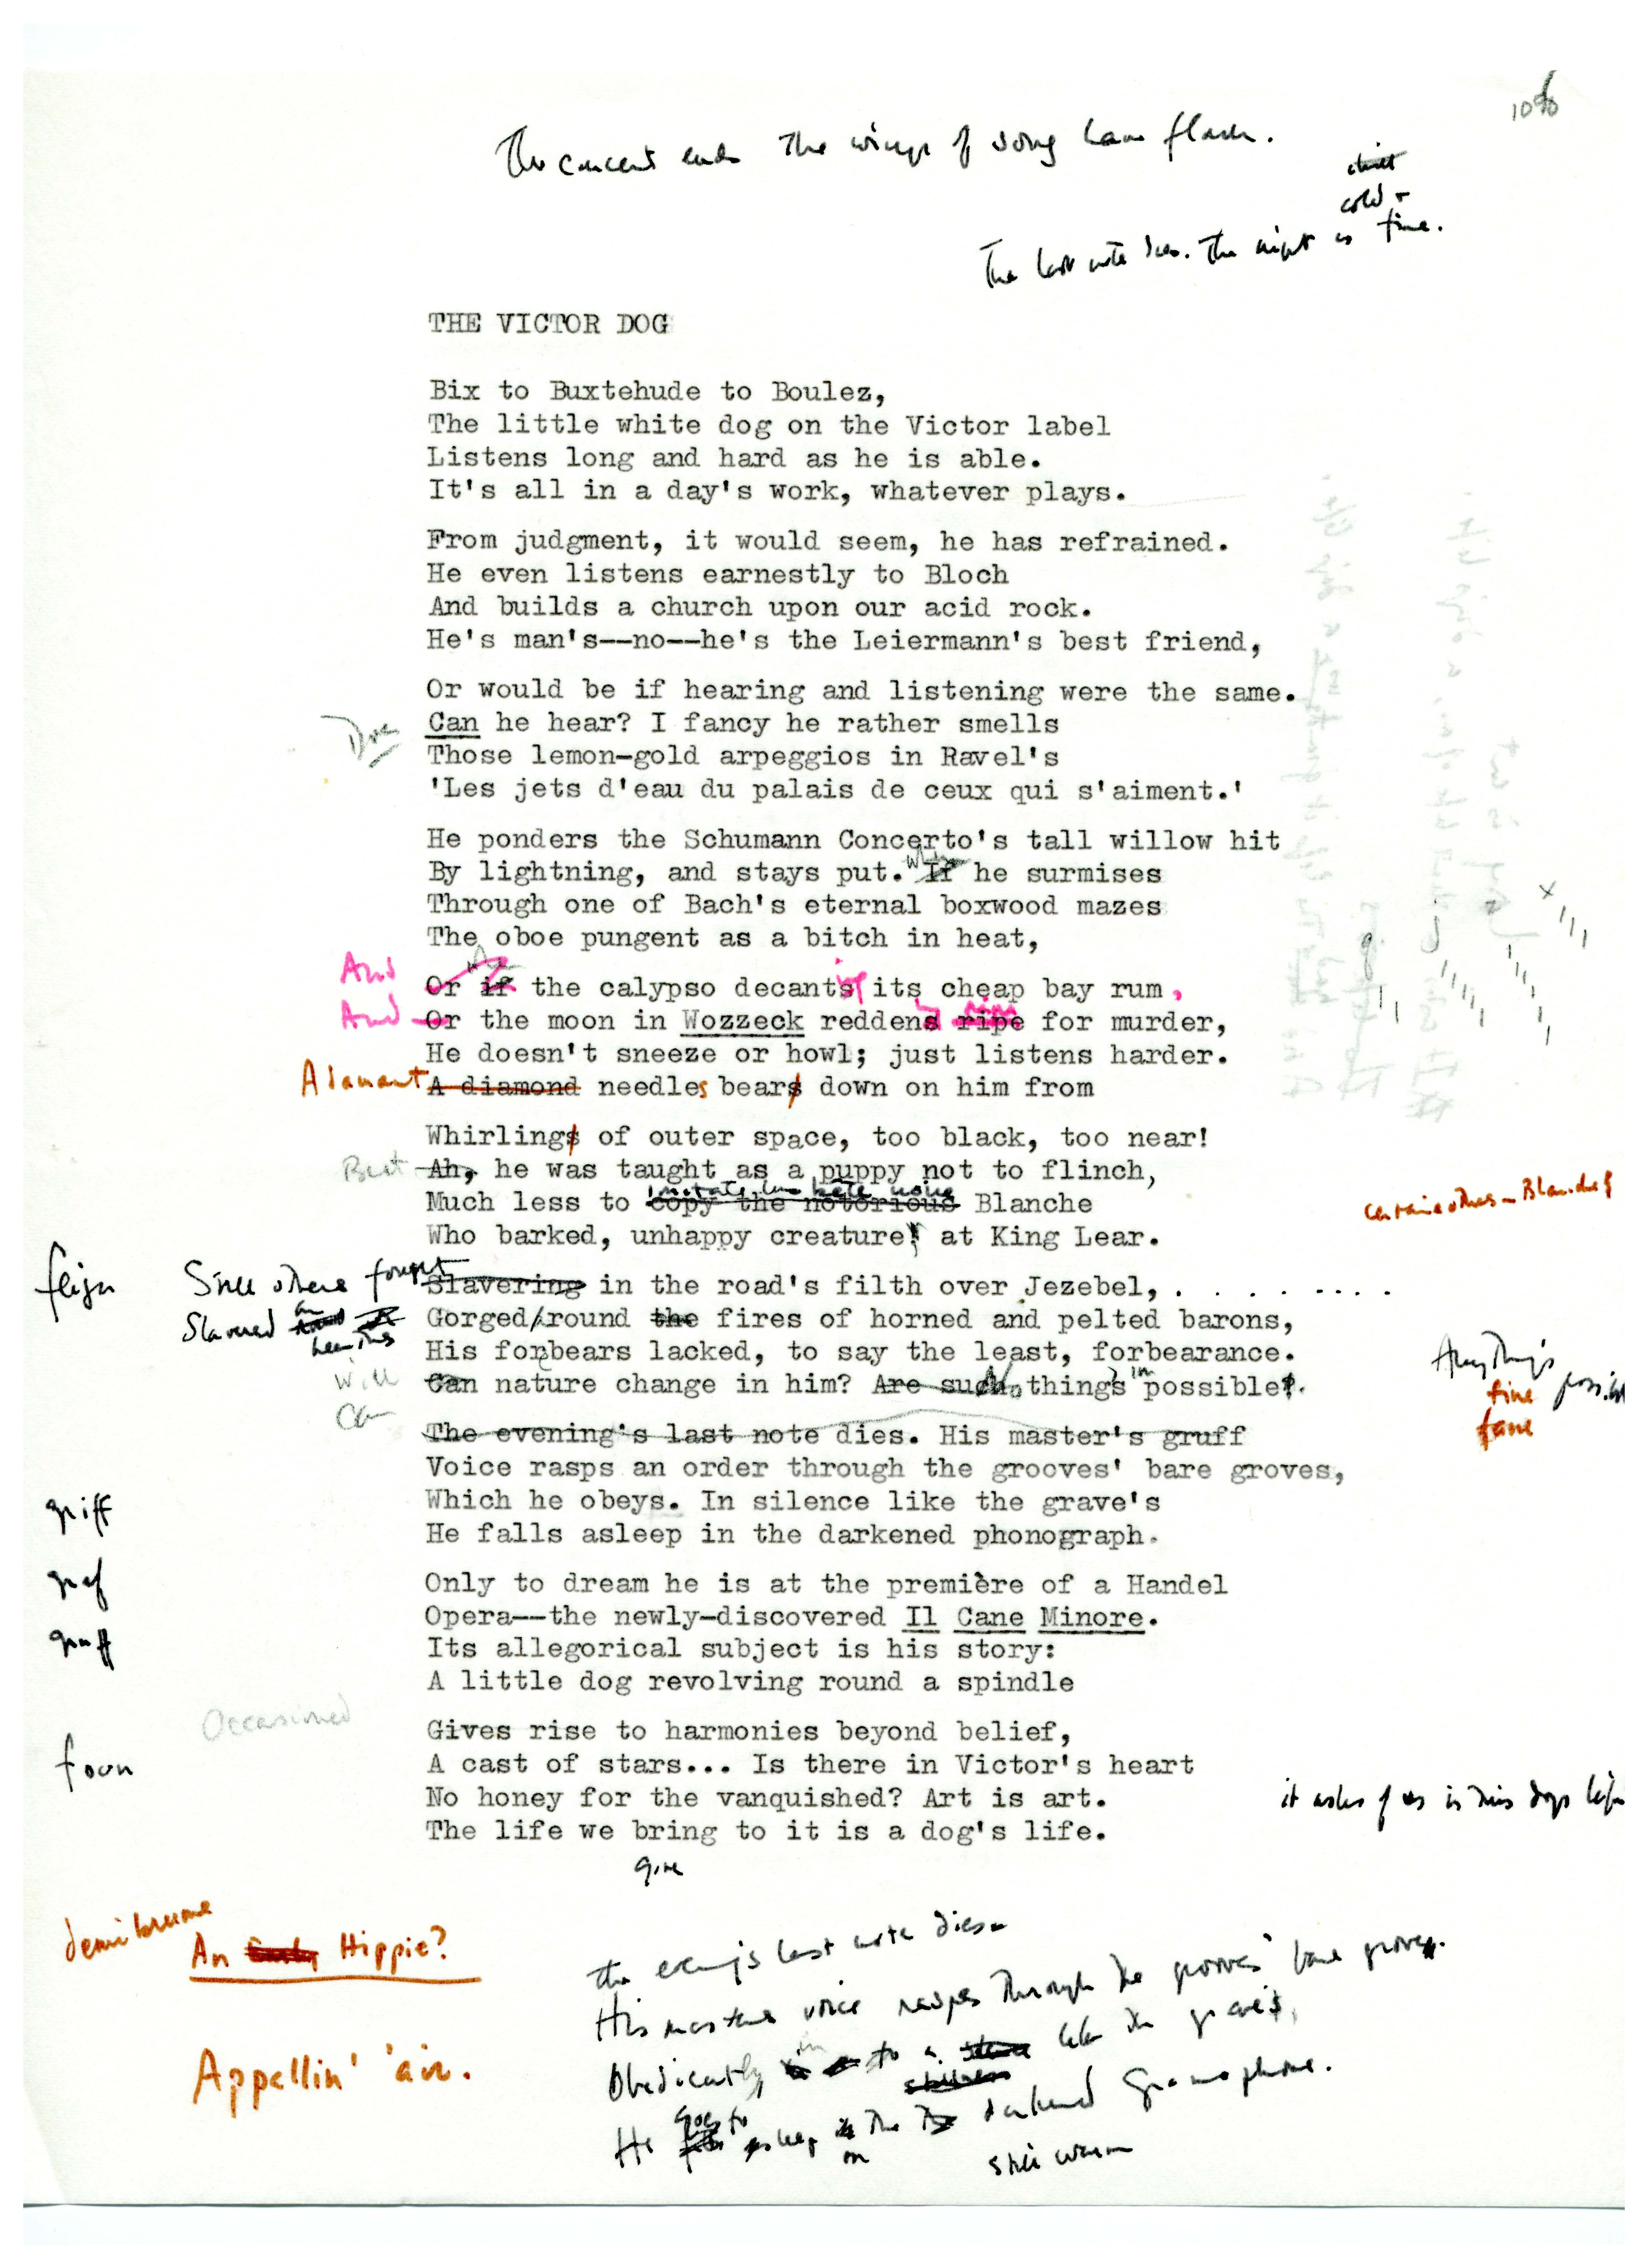 106
The concert ends The wings of song have flown.
chill
cold +
The last note dies. The night is fine.
THE VICTOR DOG
Bix to Buxtehude to Boulez,
The little white dog on the Victor label
Listens long and hard as he is able.
It's all in a day's work, whatever plays.
From judgment, it would seem, he has refrained.
He even listens earnestly to Bloch
And builds a church upon our acid rock.
He's man's--no--he's the Leiermann's best friend,
Or would be if hearing and listening were the same.
Does
Can he hear? I fancy he rather smells
Those lemon-gold arpeggios in Ravel's
'Les jets d'eau du palais de ceux qui s'aiment.'
He ponders the Schumann Concerto's tall willow hit
By lightning, and stays put. When If he surmises
Through one of Bach's eternal boxwood mazes
The oboe pungent as a bitch in heat,
And Or if the calypso decants its cheap bay rum,
And Or the moon in Wozzeck reddens ripe for murder,
He doesn't sneeze or howl; just listens harder.
Adamant A diamond needles bears down on him from
Whirlings of outer space, too black, too near!
But Ah, he was taught as a puppy not to flinch,
imitate his bête noire
Much less to copy the notorious Blanche
Who barked, unhappy creature! at King Lear.
feign
Still others fought Slavering in the road's filth over Jezebel, . . . . . . . .
Slavered
Gorged/round the fires of horned and pelted barons,
His forbears lacked, to say the least, forbearance.
Will Can nature change in him? Are such things possible?
Can
Anything's possible
fine
fane
The evening's last note dies. His master's gruff
Voice rasps an order through the grooves' bare groves,
Which he obeys. In silence like the grave's
He falls asleep in the darkened phonograph.
griff
graf
gruff
Only to dream he is at the première of a Handel
Opera--the newly-discovered Il Cane Minore.
Its allegorical subject is his story:
A little dog revolving round a spindle
Occasioned
Gives rise to harmonies beyond belief,
A cast of stars... Is there in Victor's heart
No honey for the vanquished? Art is art.
The life we bring to it is a dog's life.
it asks of us is this dogs life
give
An Early Hippie?
Appellin' 'air.
the evening's last note dies
His masters voice rasps through the grooves' bare groves.
Obediently, in to a silence like the grave's,
stillness
He goes to asleep on the darkened Gramophone.
still warm